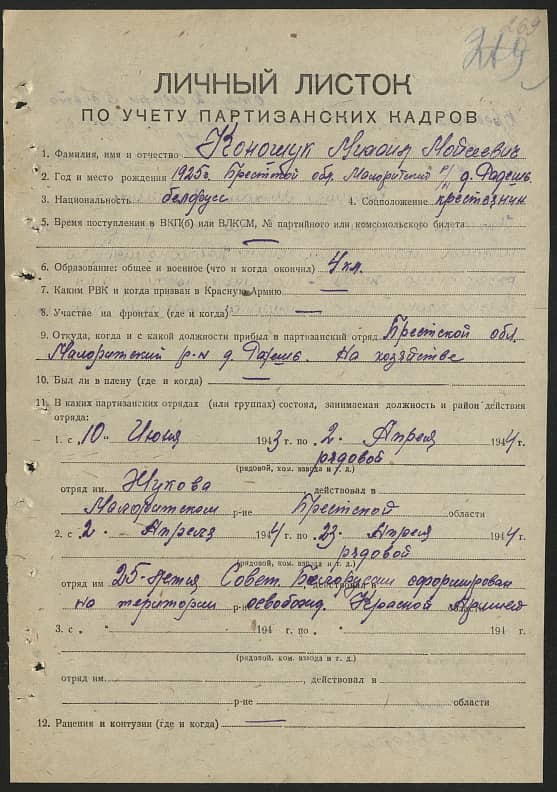 269
ЛИЧНЫЙ ЛИСТОК
ПО УЧЕТУ ПАРТИЗАНСКИХ КАДРОВ
1. Фамилия, имя и отчество Конощук Михаил Мойсеевич
2. Год и место рождения 1925г. Брестской обл. Малоритский р/н д.
3. Национальность белорусс 4. Соцположение крестьянин
5. Время поступления в ВКП(б) или ВЛКСМ, № партийного или комсомольского билета
—
6. Образование: общее и военное (что и когда окончил) 4 кл.
7. Каким РВК и когда призван в Красную Армию —
8. Участие на фронтах (где и когда) —
9. Откуда, когда и с какой должности прибыл в партизанский отряд Брестской обл.
Малоритский р-н д. На хозяйстве
10. Был ли в плену (где и когда) —
11. В каких партизанских отрядах (или группах) состоял, занимаемая должность и район действия
отряда:
1. с „10" Июня 1943 г. по „2" Апреля 1944 г.
рядовой
(рядовой, ком. взвода и т. д.)
отряд им. Жукова , действовал в
Малоритском р-не Брестской области
2. с „2" Апреля 1944 г. по „23" Апреля 1944 г.
рядовой
(рядовой, ком. взвода и т. д.)
отряд им. 25-летия Совет. Белоруссии сформирован , действовал в
на територии р-не освобожд. Красной Армией области
3. с „ " 194 г. по „ " 194 г.
(рядовой, ком. взвода и т. д.)
отряд им. , действовал в
р-не области
12. Ранения и контузии (где и когда) —